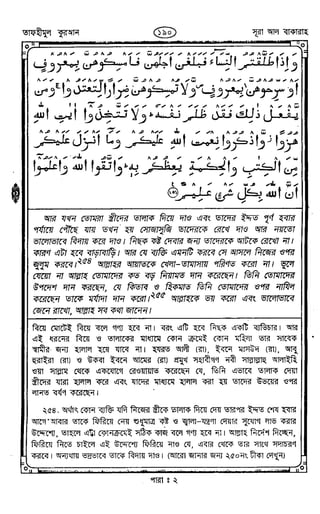 তাফহীমুল কুরআন
১৯০
সূরা আল বাকারাহ
وَإِذَا طَلَّقْتُمُ النِّسَاءَ فَبَلَغْنَ أَجَلَهُنَّ فَأَمْسِكُوهُنَّ بِمَعْرُوفٍ
أَوْ سَرِّحُوهُنَّ بِمَعْرُوفٍ وَلَا تُمْسِكُوهُنَّ ضِرَارًا لِّتَعْتَدُوا وَمَنْ
يَفْعَلْ ذَلِكَ فَقَدْ ظَلَمَ نَفْسَهُ وَلَا تَتَّخِذُوا آيَاتِ اللَّهِ
هُزُوًا وَاذْكُرُوا نِعْمَتَ اللَّهِ عَلَيْكُمْ وَمَا أَنْزَلَ عَلَيْكُمْ
مِّنَ الْكِتَابِ وَالْحِكْمَةِ يَعِظُكُمْ بِهِ وَاتَّقُوا اللَّهَ وَاعْلَمُوا
أَنَّ اللَّهَ بِكُلِّ شَيْءٍ عَلِيمٌ
আর যখন তোমরা স্ত্রীদের তালাক দিয়ে দাও এবং তাদের ইদ্দত পূর্ণ হবার
পর্যায়ে পৌঁছে যায় তখন হয় সোজাসুজি তাদেরকে রেখে দাও আর নয়তো
ভালোভাবে বিদায় করে দাও। নিছক কষ্ট দেবার জন্য তাদেরকে আটকে রেখো না।
কারণ এটা হবে বাড়াবাড়ি। আর যে ব্যক্তি এমনটি করবে সে আসলে নিজের ওপর
জুলুম করবে।২৫৪ আল্লাহর আয়াতকে খেলা-তামাসায় পরিণত করো না। ভুলে
যেয়ো না আল্লাহ তোমাদের কত বড় নিয়ামত দান করেছেন। তিনি তোমাদের
উপদেশ দান করছেন, যে কিতাব ও হিকমাত তিনি তোমাদের ওপর নাযিল
করেছেন তাকে মর্যাদা দান করো।২৫৫ আল্লাহকে ভয় করো এবং ভালোভাবে
জেনে রাখো, আল্লাহ সব কথা জানেন।
বিয়ে মোটেই বিয়ে বলে গণ্য হবে না। বরং এটি হবে নিছক একটি ব্যভিচার। আর
এই ধরনের বিয়ে ও তালাকের মাধ্যমে কোন ক্রমেই কোন মহিলা তার সাবেক
স্বামীর জন্য হালাল হয়ে যাবে না। হযরত আলী (রা), ইবনে মাসউদ (রা), আবু
হুরাইরা (রা) ও উকবা ইবনে আমের (রা) প্রমুখ সাহাবীগণ নবী সাল্লাল্লাহু আলাইহি
ওয়া সাল্লাম থেকে একযোগে রেওয়ায়াত করেছেন যে, তিনি এভাবে তালাক দেয়া
স্ত্রীদের যারা হালাল করে এবং যাদের মাধ্যমে হালাল করা হয় তাদের উভয়ের ওপর
লানত বর্ষণ করেছেন।
২৫৪. অর্থাৎ কোন ব্যক্তি যদি নিজের স্ত্রীকে তালাক দিয়ে দেয় তারপর ইদ্দত শেষ হবার
আগে আবার তাকে ফিরিয়ে নেয় শুধুমাত্র কষ্ট ও জ্বালা-যন্ত্রণা দেয়ার সুযোগ লাভ করার
উদ্দেশ্যে, তাহলে এটা কোনক্রমেই সঠিক কাজ বলে গণ্য হবে না। আল্লাহ নির্দেশ দিচ্ছেন,
ফিরিয়ে নিতে চাইলে এই উদ্দেশ্যে ফিরিয়ে নাও যে, এবার থেকে তার সাথে সদাচরণ
করবে। অন্যথায় ভদ্রভাবে তাকে বিদায় দাও। (আরো জানার জন্য ২৫০নং টীকা দেখুন)
পারা ঃ ২